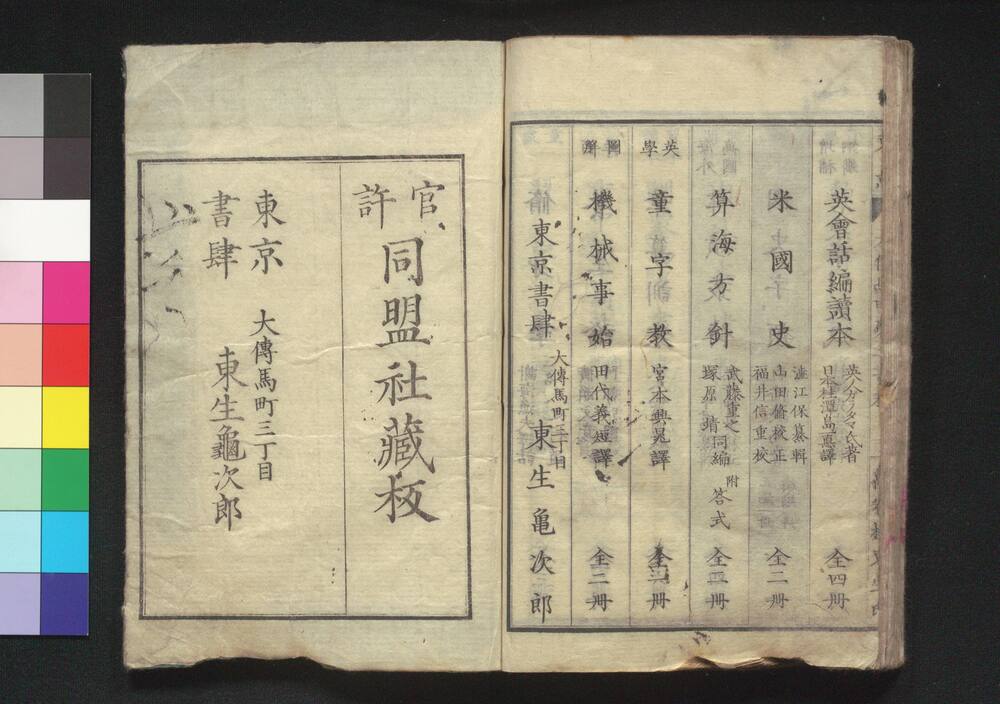 英會話編讀本 英人カノタマ氏著 全四冊
米國史 福井信重校 全二冊
算海方針 武藤重之 塚原靖同編 附答式 全二冊
英學 童字教 宮本興晃譯
圖解 機械事始 田代義矩譯 全二冊
東京書肆 大傳馬町三丁目 東生亀次郎
官許
同盟社藏板
東京
書肆
大傳馬町三丁目
東生龜次郎